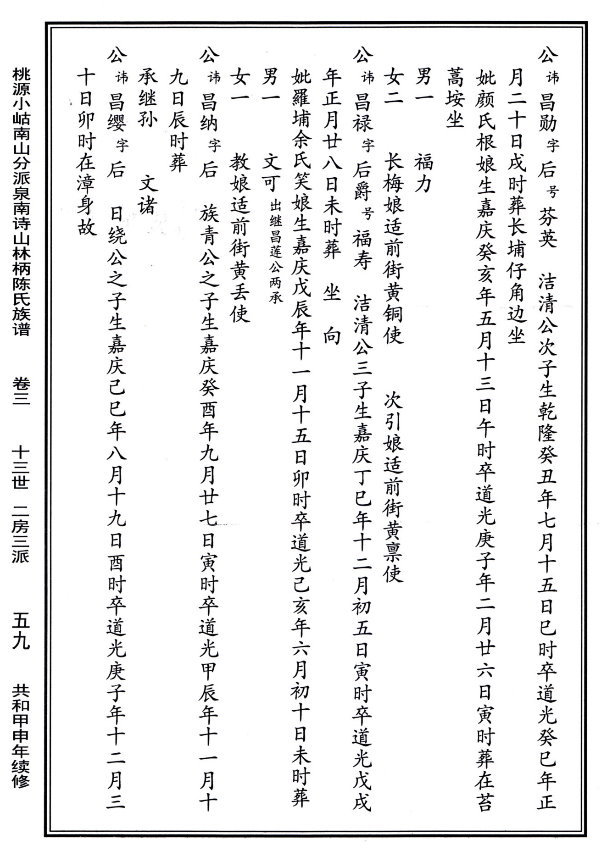 公 讳 昌勋 字 后 号 芬英 洁清公次子生乾隆癸丑年七月十五日巳时卒道光癸巳年正
月二十日戌时葬长埔仔角边坐
妣颜氏根娘生嘉庆癸亥年五月十三日午时卒道光庚子年二月廿六日寅时葬在苔
蒿垵坐
男一 福力
女二 长梅娘适前街黄铜使 次引娘适前街黄禀使
公 讳 昌禄 字 后爵 号 福寿 洁清公三子生嘉庆丁巳年十二月初五日寅时卒道光戊戌
年正月廿八日未时葬 坐 向
妣羅埔余氏笑娘生嘉庆戊辰年十一月十五日卯时卒道光己亥年六月初十日未时葬
男一 文可 出继昌莲公两承
女一 教娘适前街黄丢使
公 讳 昌纳 字 后 族青公之子生嘉庆癸酉年九月廿七日寅时卒道光甲辰年十一月十
九日辰时葬
承继孙 文诸
公 讳 昌缨 字 后 日绕公之子生嘉庆己巳年八月十九日酉时卒道光庚子年十二月三
十日卯时在漳身故
桃源小岵南山分派泉南诗山林柄陈氏族谱 卷三 十三世 二房三派 五九 共和甲申年续修